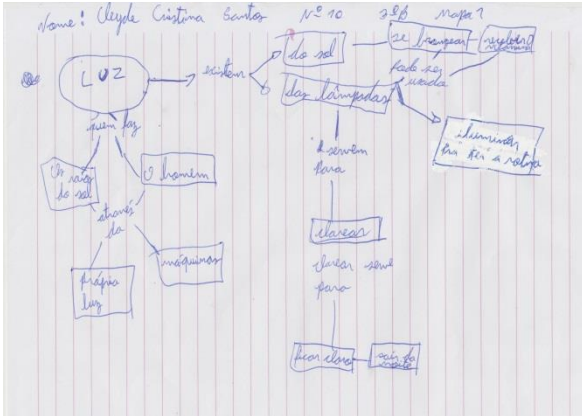 Nome: Cleyde Cristina Santos Nº 10 3ªB Mapa 1
LUZ
existem
do sol
se bronzear
das lâmpadas
pode ser
usada
iluminar
quem faz
Os raios
do sol
O homem
através
da
própria
luz
máquinas
servem
para
clarear
clarear serve
para
ficar claro
sair do